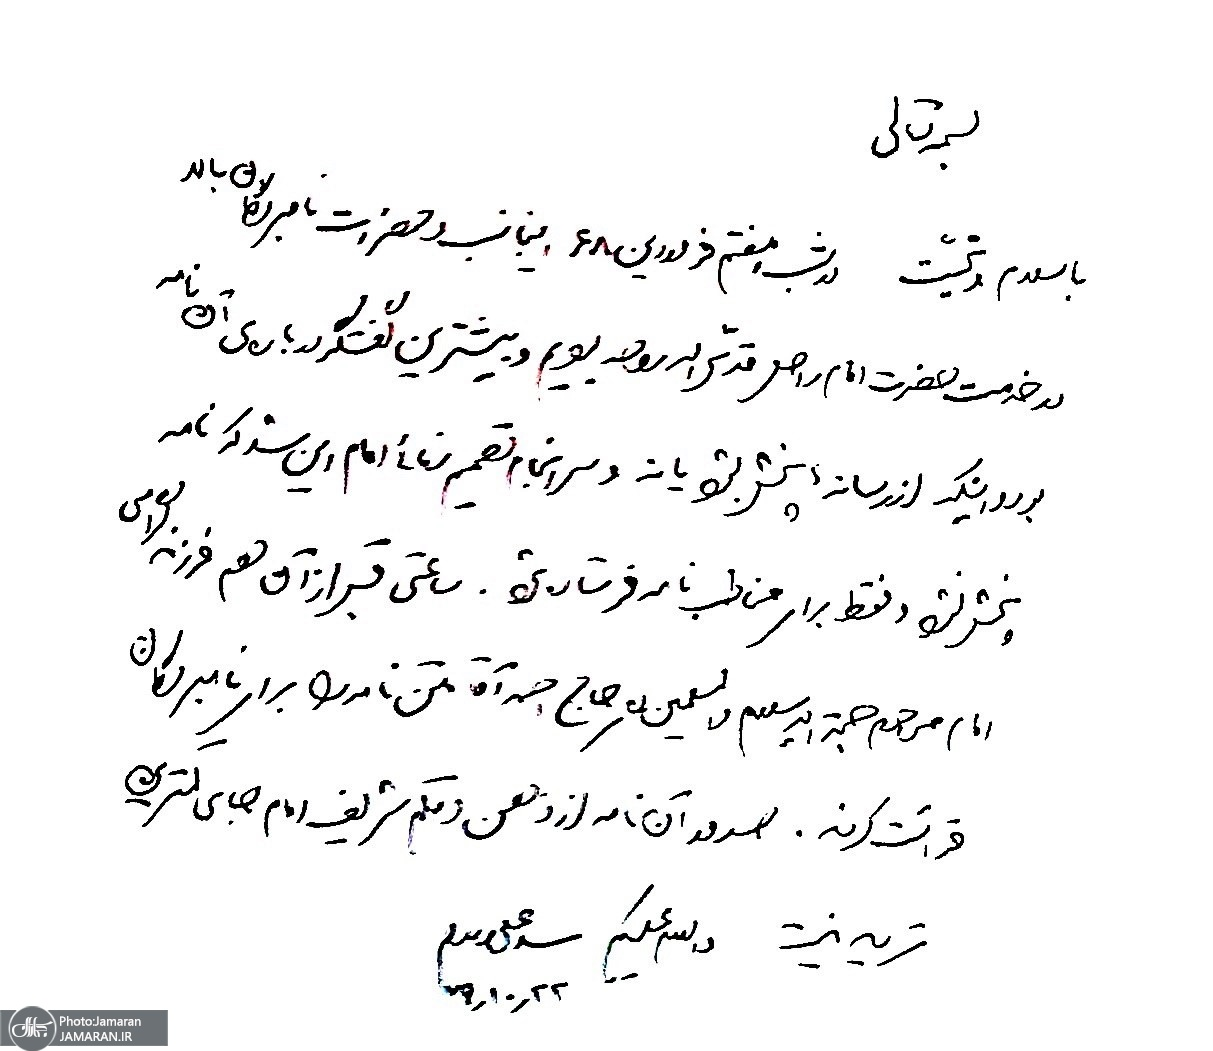 بسمه تعالی
با سلام و تحیّت در شب هفتم فروردین ۶۸ اینجانب و حضرات نامبردگان بالا
در خدمت حضرت امام راحل قدّس الله روحه بودیم و بیشترین گفتگو درباره‌ی آن نامه
بود و اینکه از رسانه‌ها پخش بشود یا نه و سرانجام تصمیم نهائی امام این شد که نامه
پخش نشود و فقط برای مخاطب نامه فرستاده شود. ساعتی قبل از آن هم فرزند گرامی
امام مرحوم حجة الاسلام والمسلمین حاج احمد آقا متن نامه را برای نامبردگان
قرائت کردند. صدور آن نامه از ذهن و قلم شریف امام جای کمترین
تردید نیست والسلام علیکم سید علی
۷۹٫۱۰٫۲۲
Photo:Jamaran
JAMARAN.IR